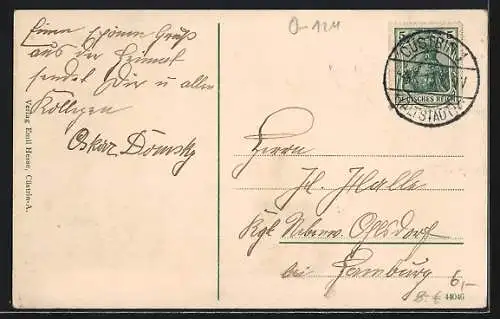 Einen schönen Gruß
aus der Heimat
sendet Dir u allen
Kollegen
Oskar Domsky
Verlag Emil Hesse, Cüstrin-A.
O-124
5 5
CÜSTRIN
DEUTSCHES REICH
ALTSTADT
Herrn
H. Halle
Kgl Ohlsdorf
bei Hamburg
6,-
8.- €
44046